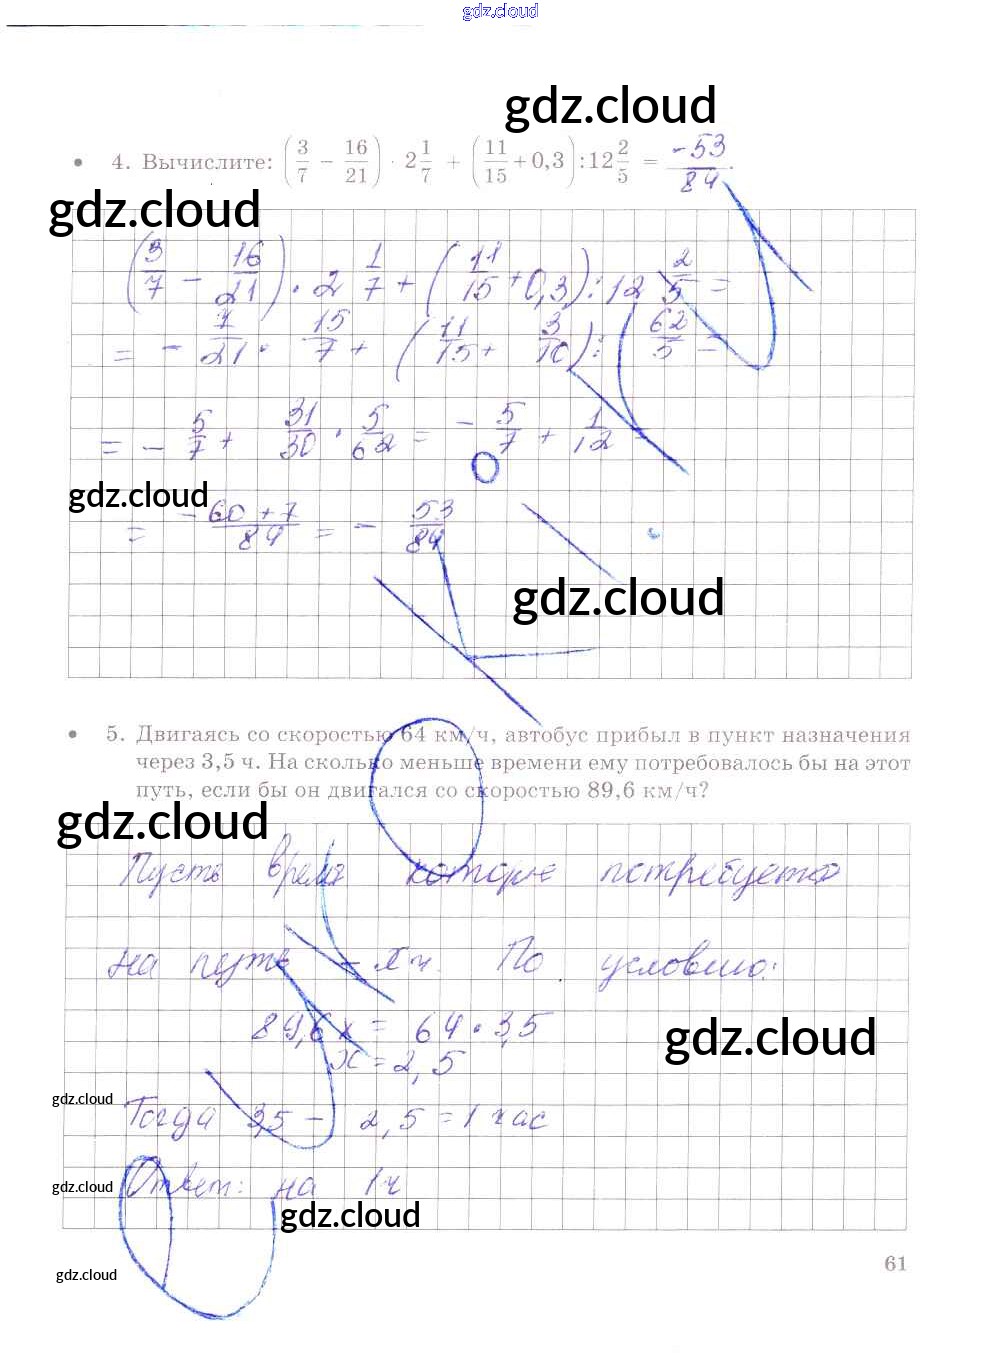 gdz.cloud
gdz.cloud
• 4. Вычислите: (3/7 − 16/21) · 2 1/7 + (11/15 + 0,3) : 12 2/5 = −53/84.
gdz.cloud
(3/7 − 16/21) · 2 1/7 + (11/15 + 0,3) : 12 2/5 =
= − 7/21 · 15/7 + (11/15 + 3/10) : 62/5 =
= − 5/7 + 31/30 · 5/62 = − 5/7 + 1/12 =
gdz.cloud
= −60 + 7/84 = − 53/84
gdz.cloud
• 5. Двигаясь со скоростью 64 км/ч, автобус прибыл в пункт назначения
через 3,5 ч. На сколько меньше времени ему потребовалось бы на этот
путь, если бы он двигался со скоростью 89,6 км/ч?
gdz.cloud
Пусть время которое потребуется
на путь – x ч. По условию:
89,6x = 64 · 3,5
gdz.cloud
x = 2,5
gdz.cloud
Тогда 3,5 − 2,5 = 1 час
gdz.cloud
Ответ: на 1 ч
gdz.cloud
61
gdz.cloud